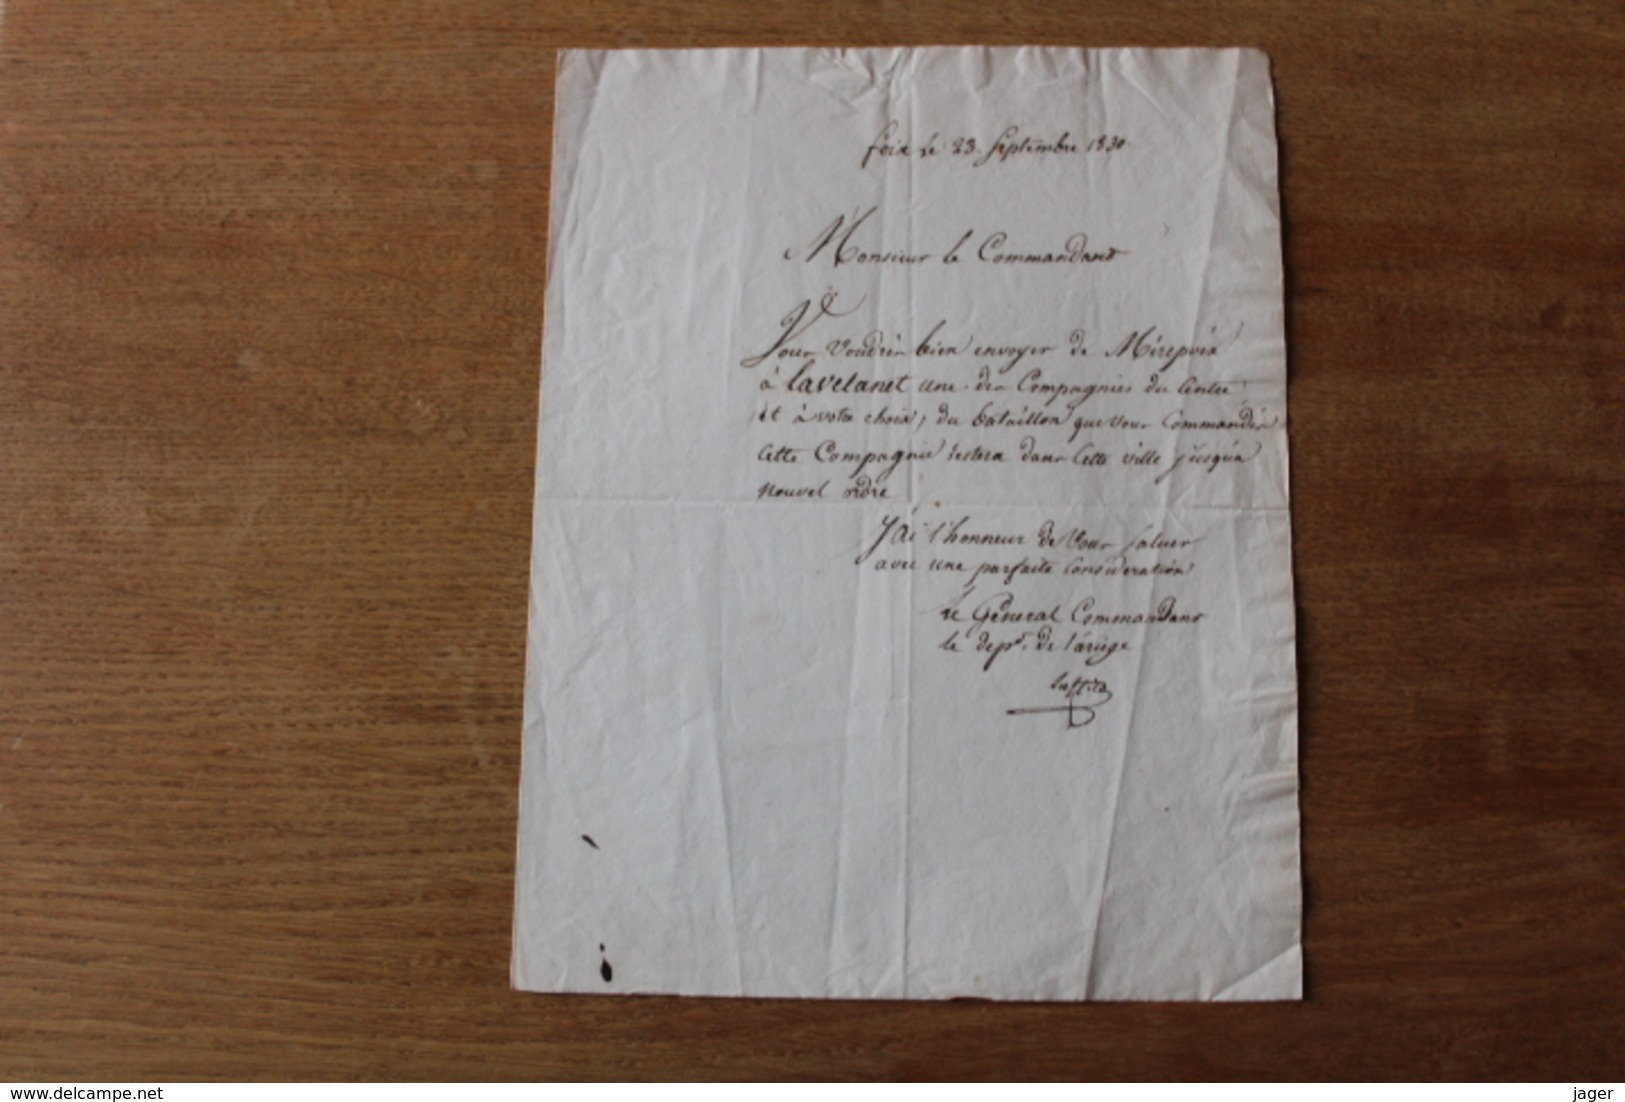 foix le 23 Septembre 1830
Monsieur le Commandant
Vous voudrés bien envoyer de Mirepoix
à Lavelanet une des Compagnies du Centre
(et à votre choix) du bataillon que vous commandés
Cette Compagnie restera dans cette ville jusqu'à
nouvel ordre
J'ai l'honneur de vous saluer
avec une parfaite consideration
le Général Commandant
le dept. de l'ariège
Lafitte
www.delcampe.net
jager